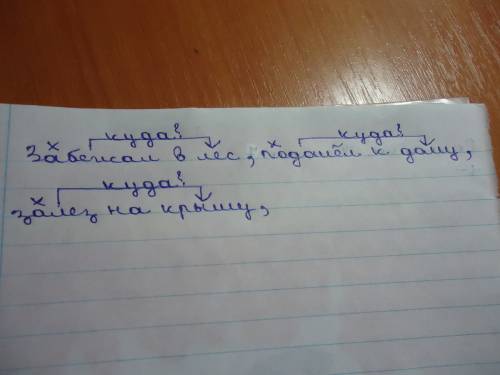 куда? куда?
х х
Забежал в лес, подошёл к дому,
куда?
х
залез на крышу,